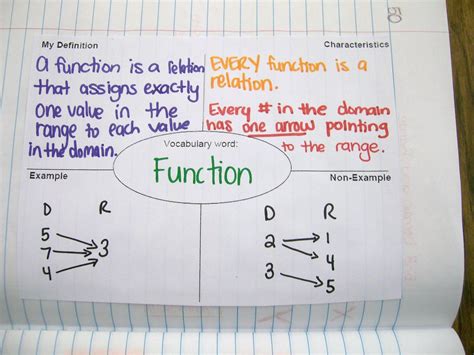 My Definition
A function is a relation
that assigns exactly
one value in the
range to each value
in the domain.
Characteristics
EVERY function is a
relation.
Every # in the domain
has one arrow pointing
to the range.
Vocabulary word:
Function
Example
D R
5
7 3
4
Non-Example
D R
2 1
4
3 5
50